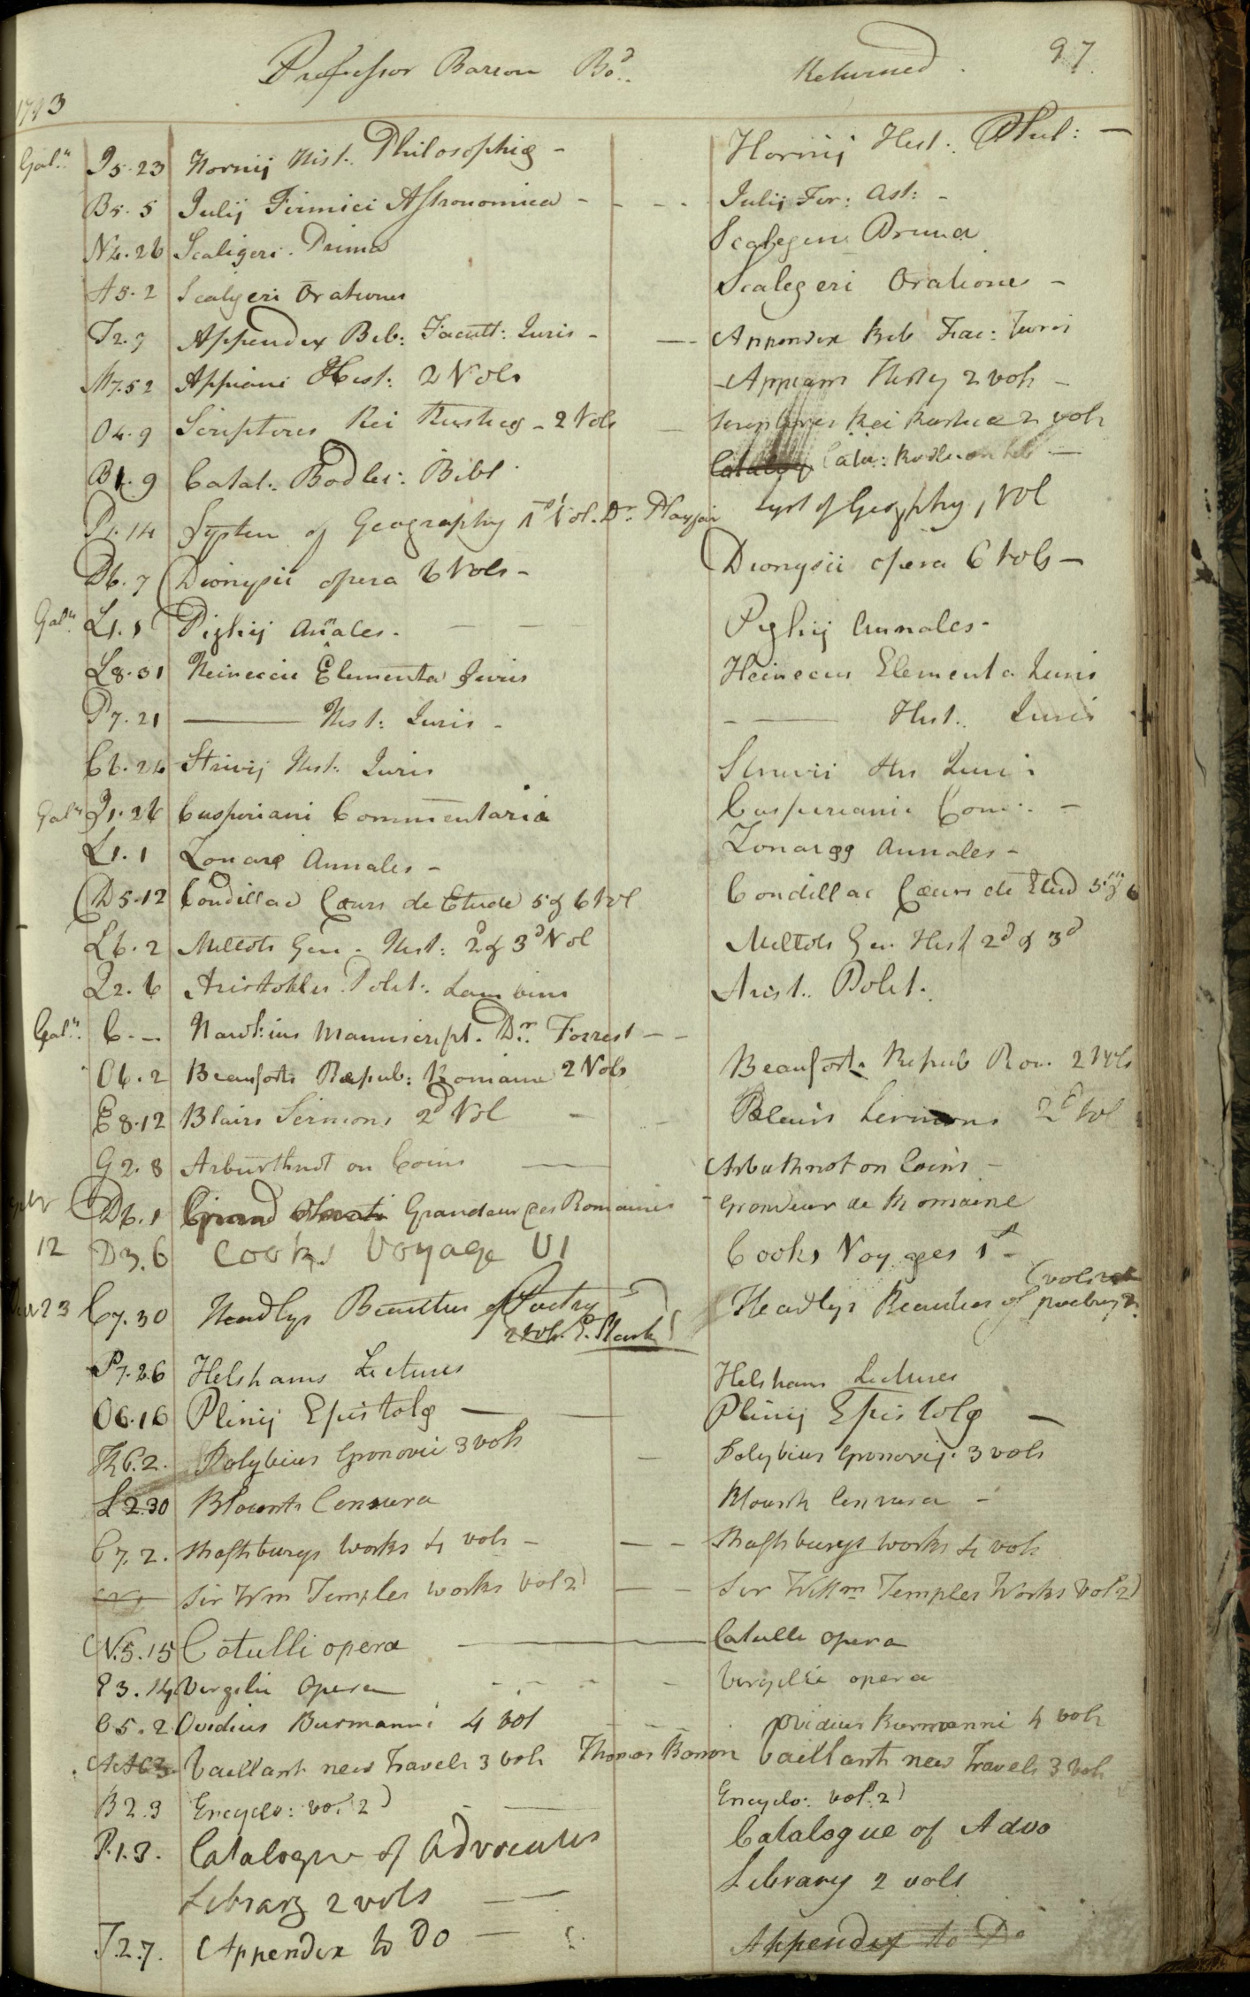 Professor Barron Bo.d Returned 97
1793
Gal.y P5.23 Hornij Hist. Philosophiæ - Hornij Hist. Phil: -
B5.5 Julij Firmici Astronomica - - - - Julij Fir: Ast: -
N4.26 Scaligeri Prima Scaligeri Prima
A5.2 Scaligeri Orationes Scaligeri Orationes -
T2.7 Appendix Bib: Facult: Juris - - - Appendix Bib Fac: Juris
M7.52 Appiani Hist: 2 Vols - Appiani Histy 2 vols -
O4.9 Scriptores Rei Rusticæ - 2 Vols - Scriptores Rei Rustica 2 vols
B1.9 Catal. Bodlei: Bibl. Catalog Cata: Bodleian Bib -
P1.14 System of Geography 1st Vol. Dr. Playfair Syst of Geogphy 1 Vol
D6.7 Dionysii opera 6 Vols - Dionysii opera 6 Vols -
Gal.y L1.1 Pighij Anales. - - Pighij Annales -
L8.31 Heineccii Elementa Juris Heineccii Elementa Juris
P7.21 --- Hist: Juris - - --- Hist. Juris
C6.24 Struvij Hist. Juris Struvii His Juris
Gal.y J1.26 Cuspiniani Commentaria Cuspiniani Com: -
L1.1 Zonaræ Annales - Zonaræ Annales -
D5.12 Condillac Cours de Etude 5 & 6 Vol Condillac Cours de Etud 5 & 6
L6.2 Millots Gen. Hist: 2d & 3d Vol Millots Gen. Hist 2d & 3d
L2.6 Aristoteles Polit. Lambini Arist. Polit.
Gal.y C. - Hawkins Manuscript. Dr. Forrest - -
O6.2 Beauforts Repub: Romaine 2 Vols Beauforts Repub Rom 2 Vols
E8.12 Blairs Sermons 2d Vol - - Blairs Sermons 2d Vol
G2.8 Arburthnot on Coins --- Arbuthnot on Coins -
D6.1 Grand Grandeur des Romaines - Grandeur de Romaine
12 D3.6 Cooks Voyage V1 Cooks Voyages 1st -
23 C7.30 Headlys Beauties of Poetry Headlys Beauties of poetry 2
2 Vols. (vols
P7.26 Helshams Lectures Helsham Lectures
O6.16 Plinij Epistolæ - Plinij Epistolæ -
K6.2. Polybius Gronovii 3 vols - Polybius Gronovij. 3 vols
L2.30 Blounts Censura Blounts Censura -
C7.2. Shaftsburys Works 4 vols - - - Shaftsburys Works 4 vols
Sir Wm Temples works Vol 2) - - Sir Willm Temples Works Vol 2)
N.5.15 Catulli opera --- Catulli opera
E3.14 Virgilii Opera - - - - Virgilii opera
C5.2 Ovidius Burmanni 4 vol Ovidius Burmanni 4 vols
Vaillants new Travels 3 vols Thomas Barron Vaillants new Travels 3 vols
B2.3 Encyclo: vol. 2) Encyclo: vol. 2)
P.1.3. Catalogue of Advocates Catalogue of Advo
Library 2 vols - - Library 2 vols
T.2.7. Appendix to Do - Appendix to Do